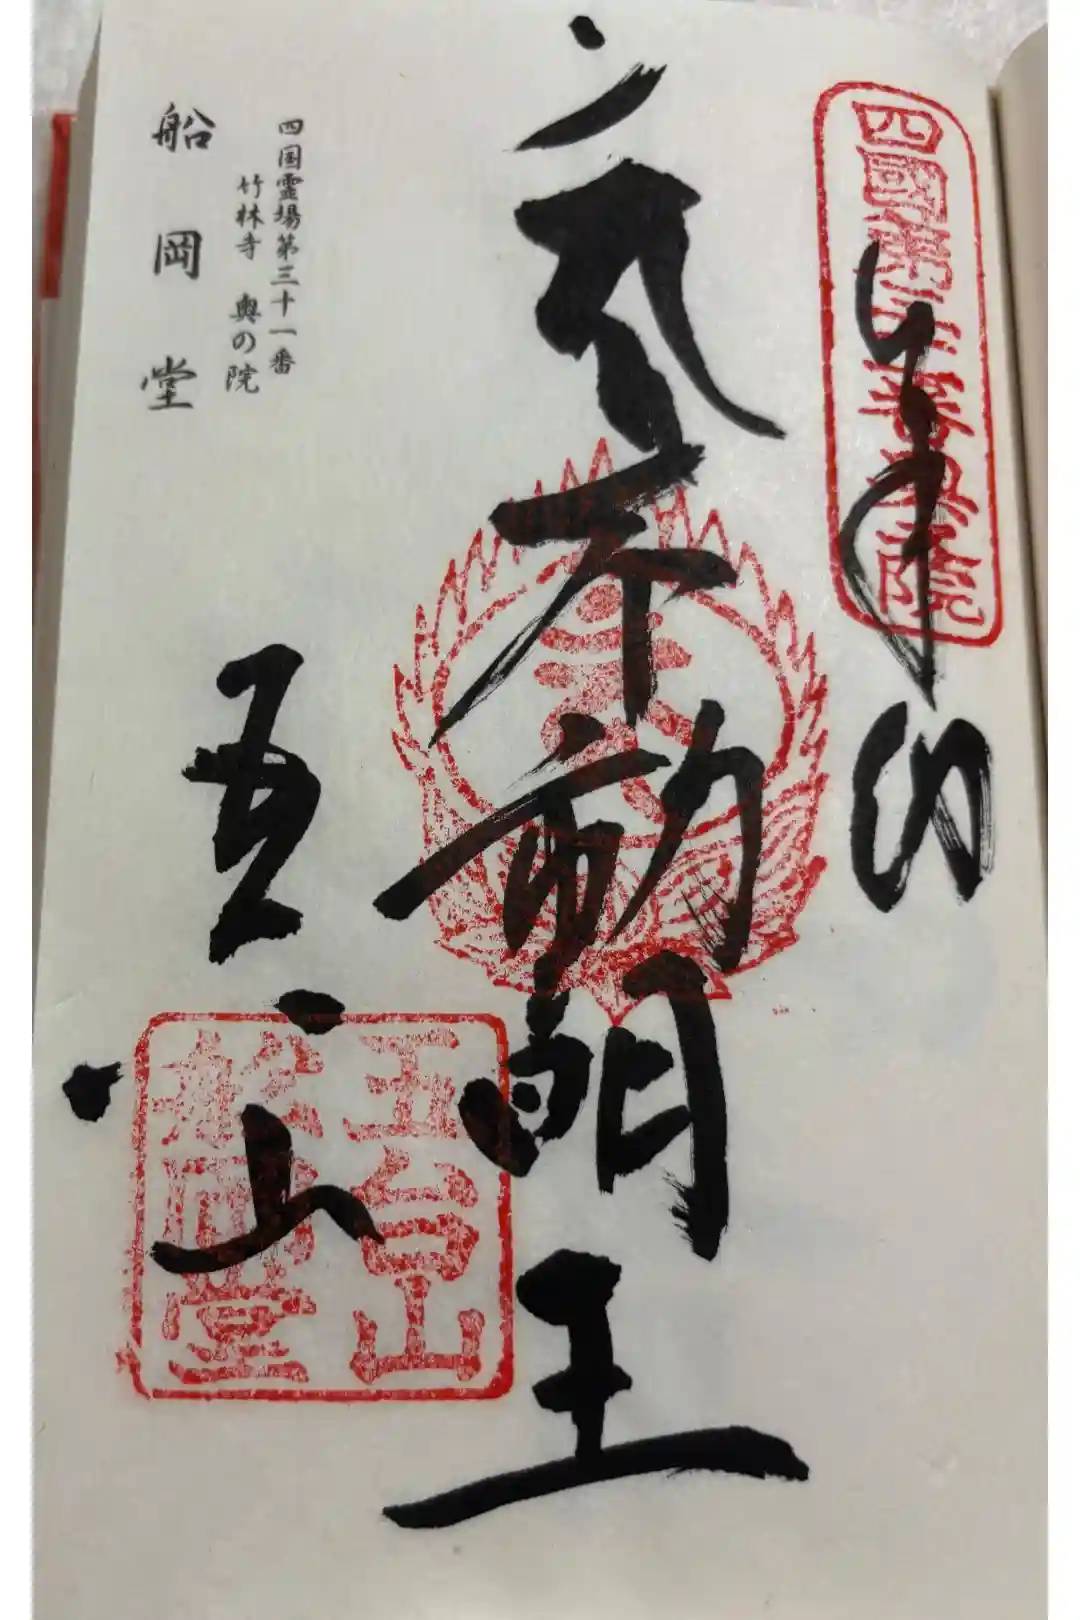 奉拝
不動明王
五台山
四國第三十一番奥之院
五台山
船岡堂
四国霊場第三十一番
竹林寺 奥の院
船岡堂